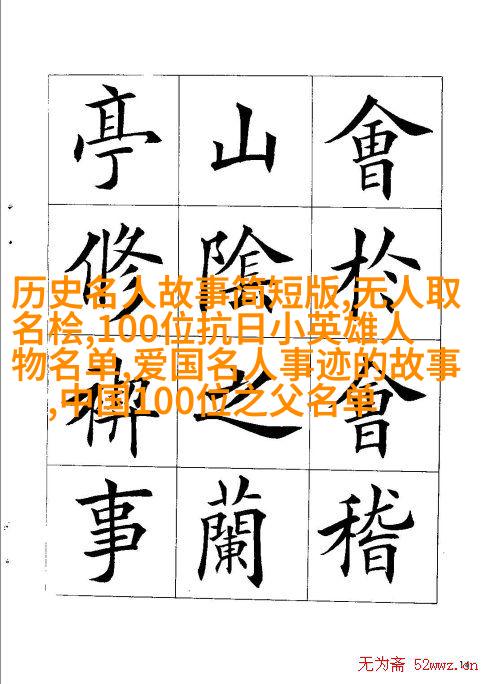 會於會稽
山陰之蘭
亭修禊事
历史名人故事简短版,无人取
名桧,100位抗日小英雄人
物名单,爱国名人事迹的故事
,中国100位之父名单
无为斋 52wwz.cn